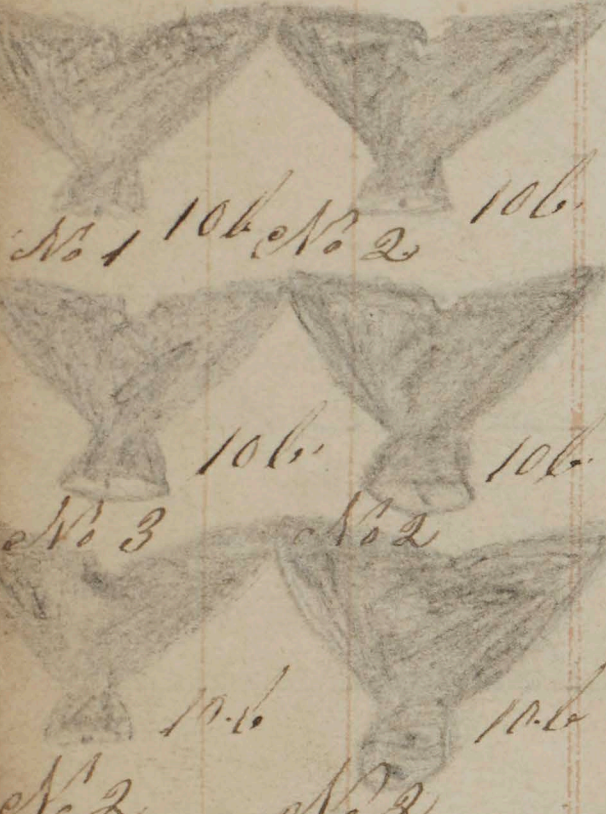 No 1 10 b No 2 10 b.
10 b. 10 b.
No 3 No 2
10. b 10. b
No 2 No 2